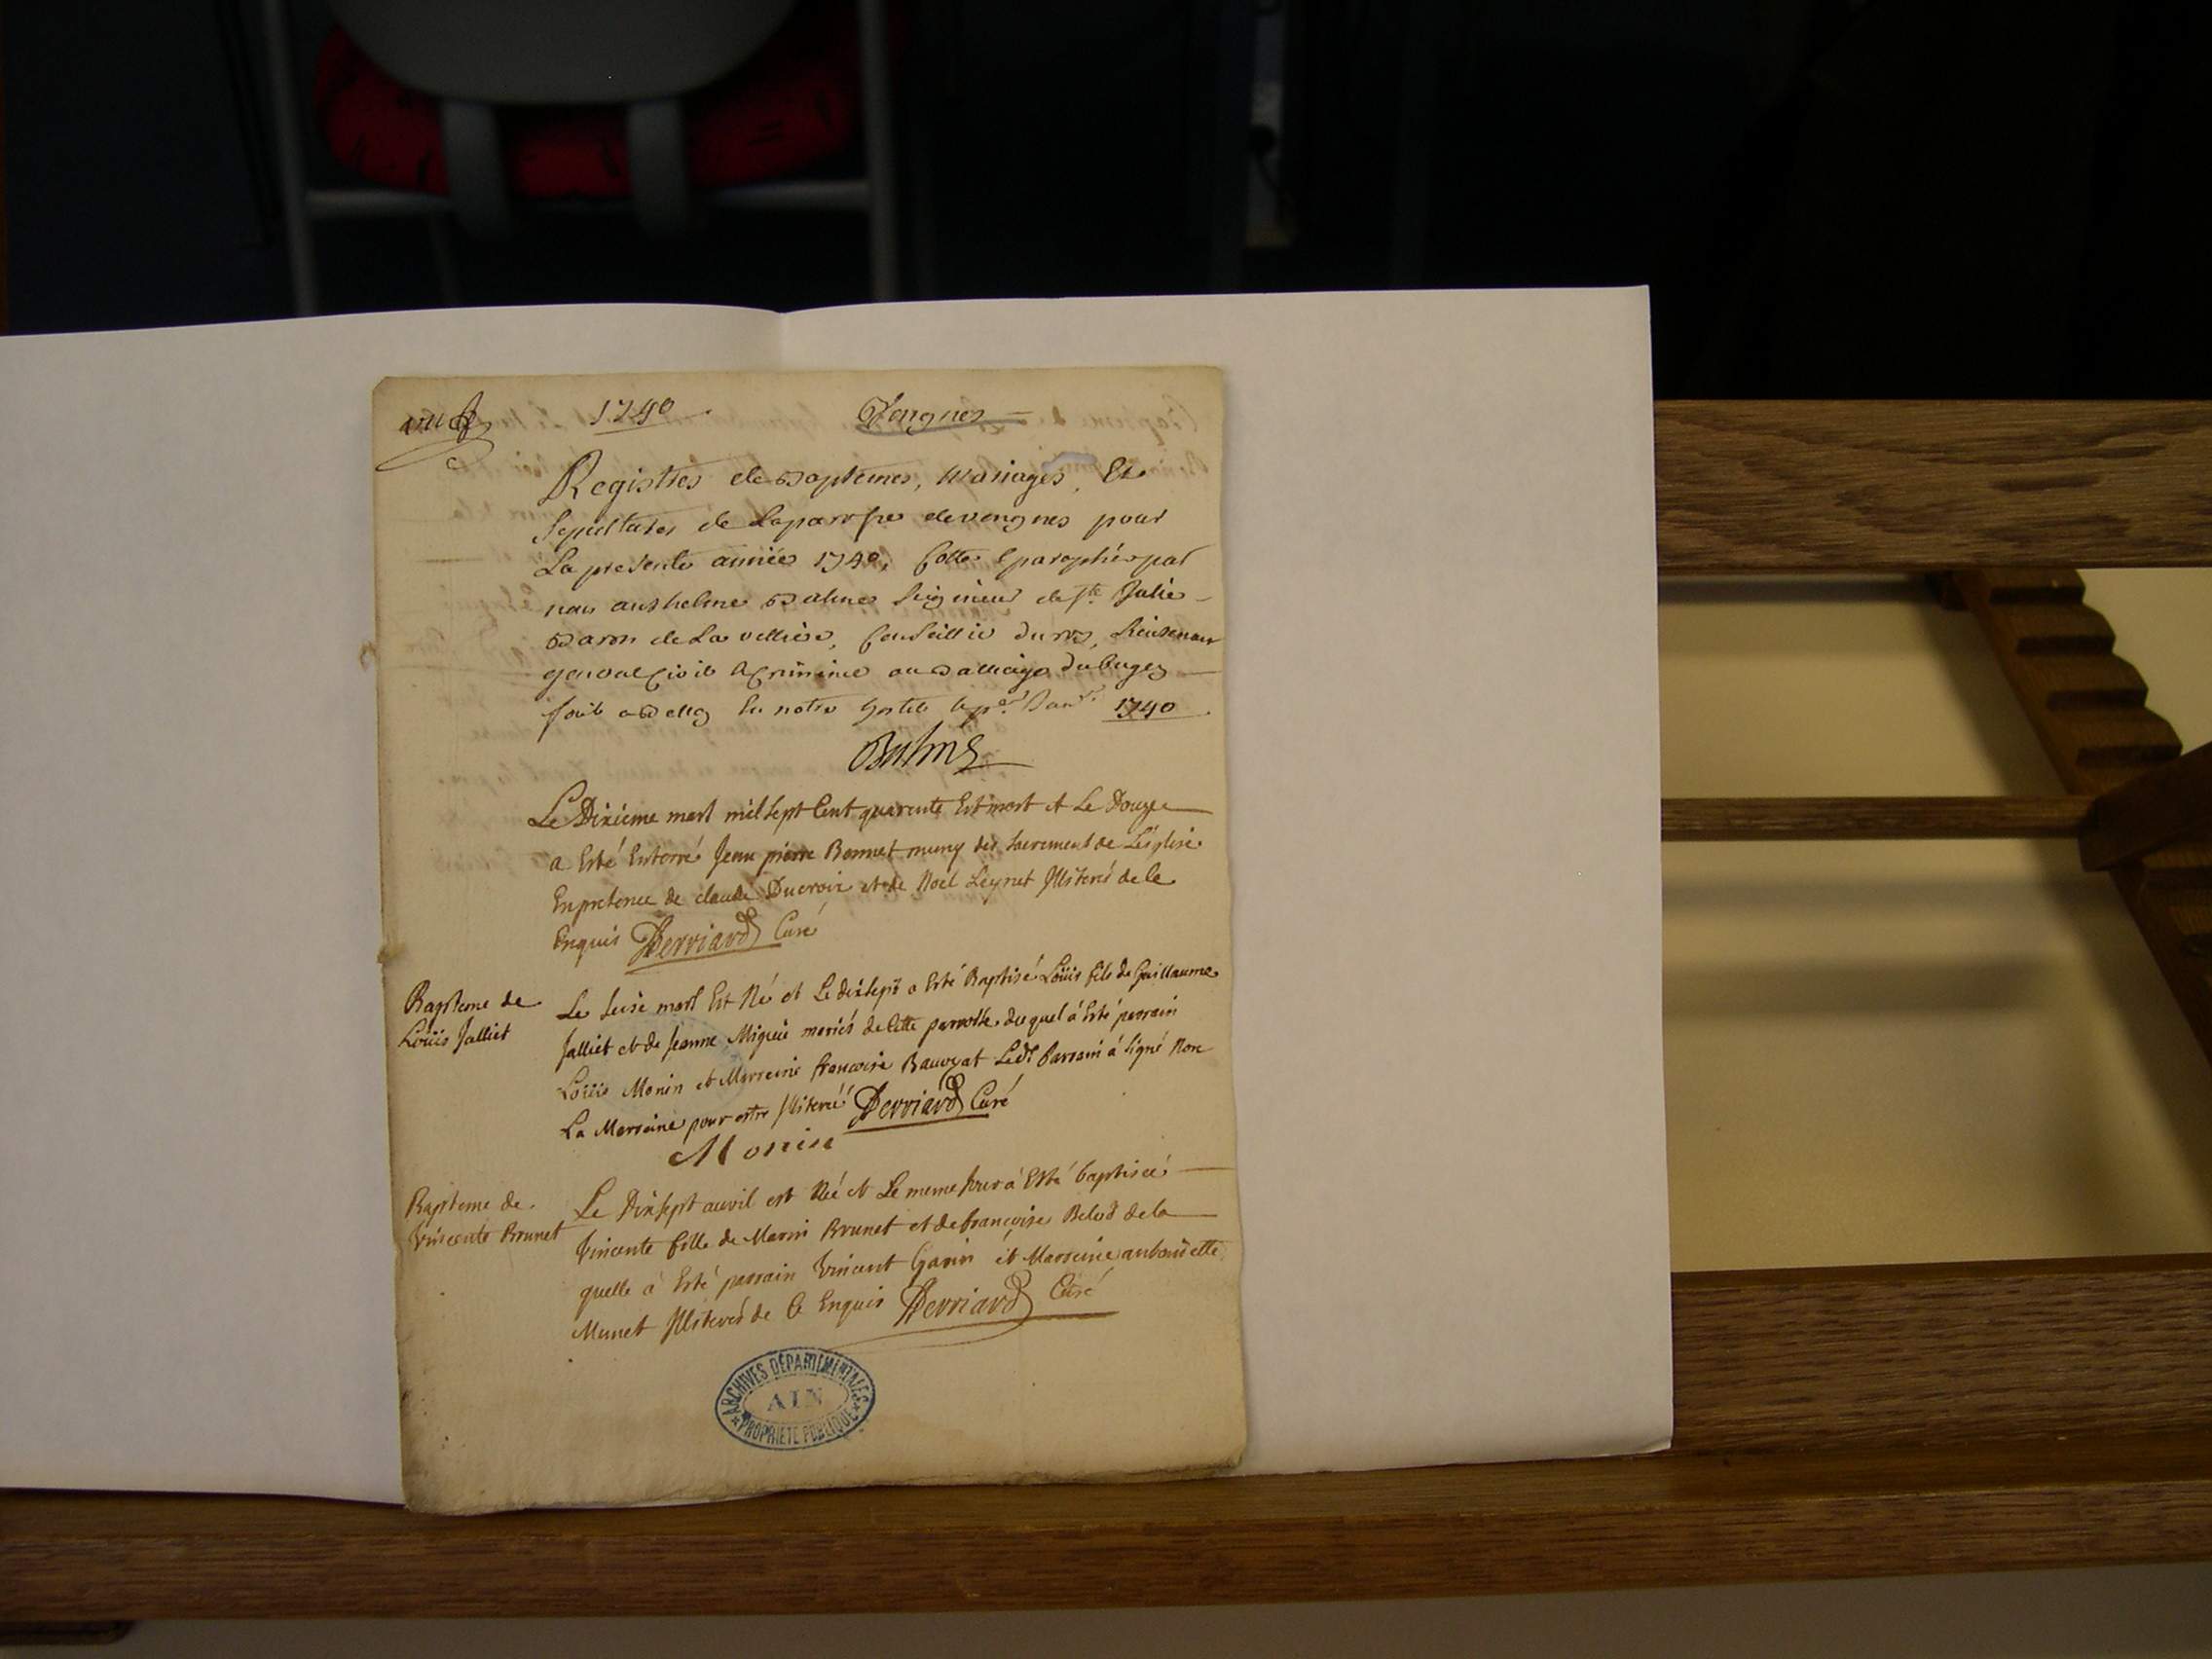 1740 Vongnes
Registres de Baptemes, Mariages, Et
Sepultures de Laparoisse devongnes pour
La presente année 1740, Cotté & paraphés par
nous anthelme Balme Seigneur de Ste Julie
Baron de La velliere, Conseillie du roy, Lieutenant
general Civil & Criminel au Balliage du bugey
fait a Belley En notre hostel le per Janr. 1740
Balme
Le Dixieme mars mil sept Cent quarente Est mort et Le Douze
a Esté Enterré Jean pierre Bonnet muny des sacrement de L'eglise
En presence de claude Ducroix et de Noel Leynet Illiterés de le
Enquis Derriard Curé
Bapteme de
Loüis Jalliet
Le seise mars Est Né et Le dixsept a Esté Baptisé Loüis fils de Guillaume
Jalliet et de Jeanne Miguie mariés de Cette parroisse duquel à Esté parrain
Loüis Monin et Marreine francoise Bauozat Ledt parrain à signé Non
La Marreine pour estre Illiterée Derriard Curé
Monin
Bapteme de
Vincente Brunet
Le Dixsept auvil est Née et Le meme Jour à Esté baptisée
Vincente fille de Marin Brunet et de françoise Belod de la
quelle à Esté parrain Vincent Garin et Marreine
Munet Illiterés de Ce Enquis Derriard Curé
ARCHIVES DÉPARTEMENTALES
AIN
PROPRIÉTÉ PUBLIQUE